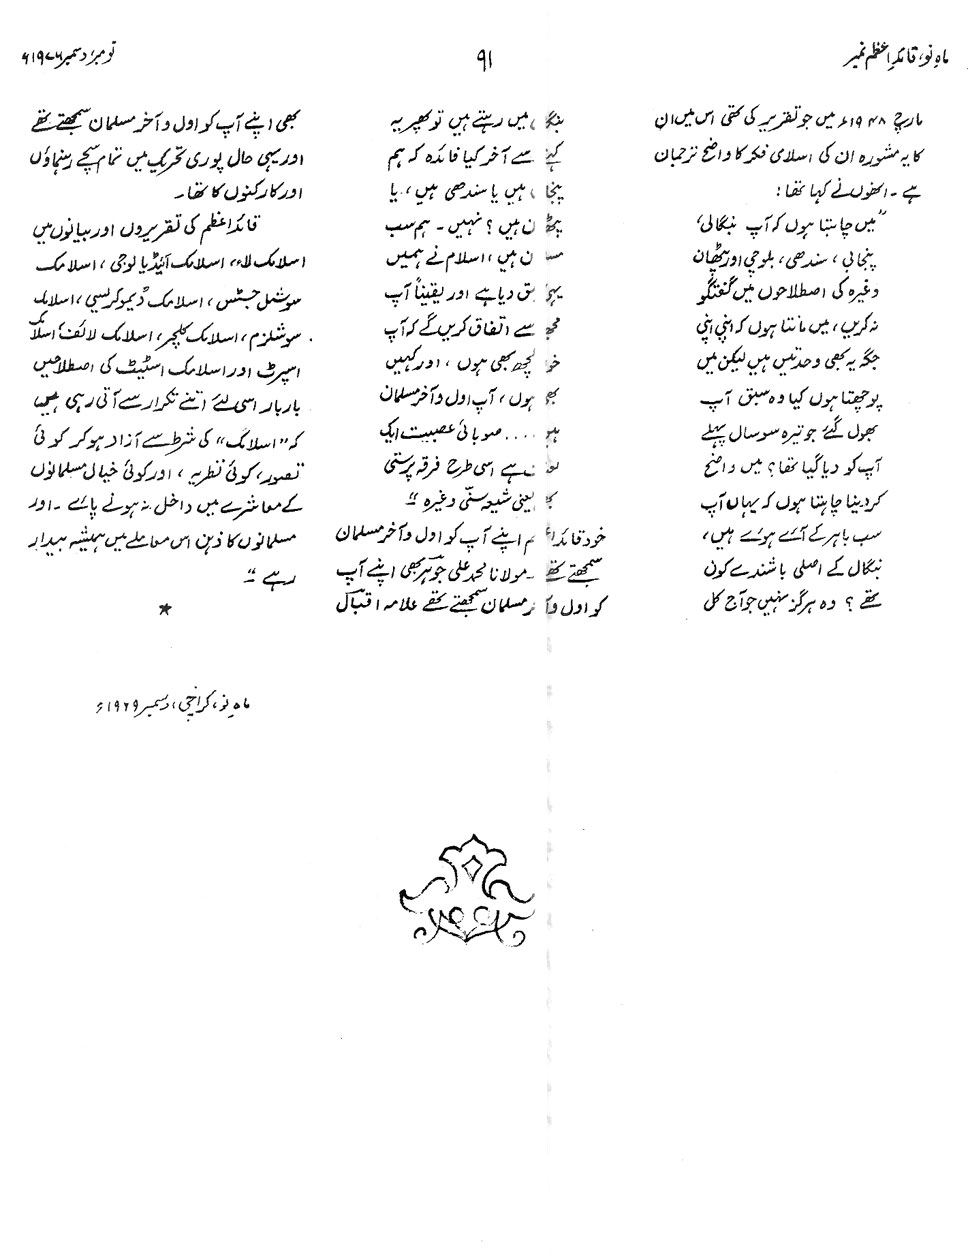 ماہِ نو، قائدِ اعظم نمبر
۹۱
نومبر؍دسمبر ۱۹۷۶ء
مارچ ۱۹۴۸ء میں جو تقریر کی تھی اس میں ان
کا یہ مشورہ ان کی اسلامی فکر کا واضح ترجمان
ہے۔ انھوں نے کہا تھا:
"میں چاہتا ہوں کہ آپ بنگالی،
پنجابی، سندھی، بلوچی اور پٹھان
وغیرہ کی اصطلاحوں میں گفتگو
نہ کریں، میں مانتا ہوں کہ اپنی اپنی
جگہ یہ بھی وحدتیں ہیں لیکن میں
پوچھتا ہوں کیا وہ سبق آپ
بھول گئے جو تیرہ سو سال پہلے
آپ کو دیا گیا تھا؟ میں واضح
کر دینا چاہتا ہوں کہ یہاں آپ
سب باہر کے آئے ہوئے ہیں،
بنگال کے اصلی باشندے کون
تھے؟ وہ ہرگز نہیں جو آج کل
میں رہتے ہیں تو پھر یہ
کہنے سے آخر کیا فائدہ کہ ہم
پنجابی ہیں یا سندھی ہیں، یا
پٹھان ہیں؟ نہیں۔ ہم سب
مسلمان ہیں، اسلام نے ہمیں
یہی سبق دیا ہے اور یقیناً آپ
مجھ سے اتفاق کریں گے کہ آپ
خواہ کچھ بھی ہوں، اور کہیں
بھی ہوں، آپ اول و آخر مسلمان
ہیں .... صوبائی عصبیت ایک
لعنت ہے اسی طرح فرقہ پرستی
یعنی شیعہ سنّی وغیرہ"
خود قائد اعظم اپنے آپ کو اول و آخر مسلمان
سمجھتے تھے۔ مولانا محمد علی جوہر بھی اپنے آپ
کو اول و آخر مسلمان سمجھتے تھے علامہ اقبال
بھی اپنے آپ کو اول و آخر مسلمان سمجھتے تھے
اور یہی حال پوری تحریک میں تمام سچے رہنماؤں
اور کارکنوں کا تھا۔
قائد اعظم کی تقریروں اور بیانوں میں
اسلامک لاء، اسلامک آئیڈیالوجی، اسلامک
سوشل جسٹس، اسلامک ڈیموکریسی، اسلامک
سوشلزم، اسلامک کلچر، اسلامک لائف، اسلامک
اسپرٹ اور اسلامک اسٹیٹ کی اصطلاحیں
بار بار اسی لئے اتنے تکرار سے آتی رہی ہیں
کہ "اسلامک" کی شرط سے آزاد ہو کر کوئی
تصور، کوئی نظریہ، اور کوئی خیال مسلمانوں
کے معاشرے میں داخل نہ ہونے پائے۔ اور
مسلمانوں کا ذہن اس معاملے میں ہمیشہ بیدار
رہے"
★
ماہِ نو، کراچی، دسمبر ۱۹۶۹ء